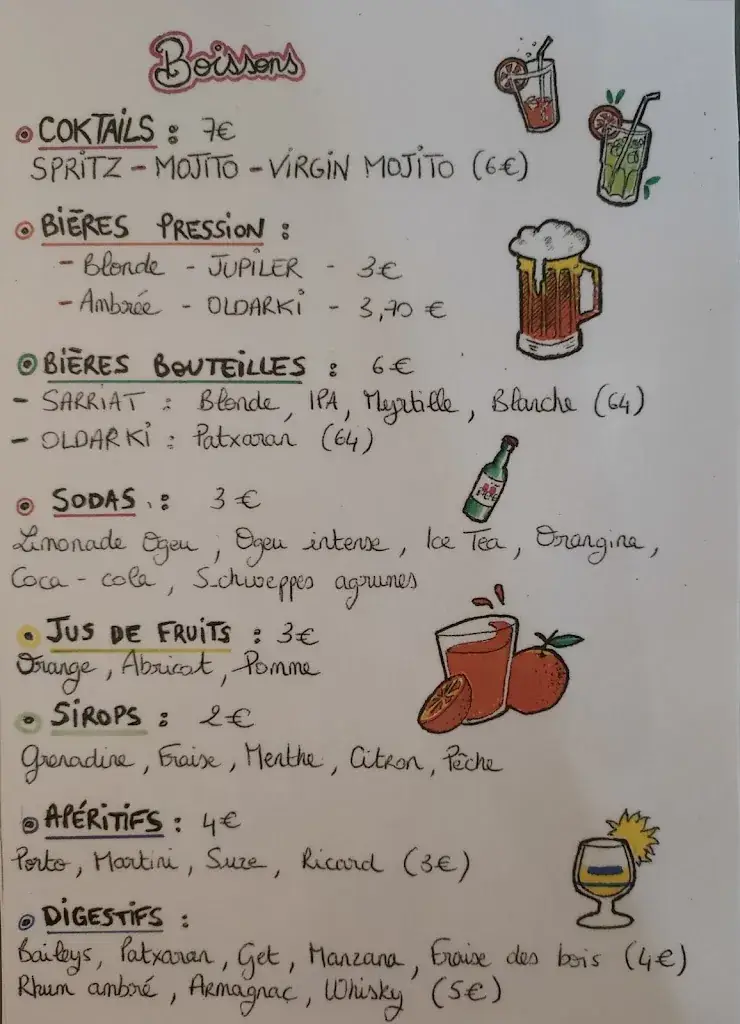 Boissons
COKTAILS : 7€
SPRITZ - MOJITO - VIRGIN MOJITO (6€)
BIÈRES PRESSION :
- Blonde - JUPILER - 3€
- Ambrée - OLDARKI - 3,70 €
BIÈRES BOUTEILLES : 6€
- SARRIAT : Blonde, IPA, Myrtille, Blanche (64)
- OLDARKI : Patxaran (64)
SODAS : 3€
Limonade Ogeu, Ogeu intense, Ice Tea, Orangina,
Coca - cola, Schweppes agrumes
JUS DE FRUITS : 3€
Orange, Abricot, Pomme
SIROPS : 2€
Grenadine, Fraise, Menthe, Citron, Pêche
APÉRITIFS : 4€
Porto, Martini, Suze, Ricard (3€)
DIGESTIFS :
Baileys, Patxaran, Get, Manzana, Fraise des bois (4€)
Rhum ambré, Armagnac, Whisky (5€)